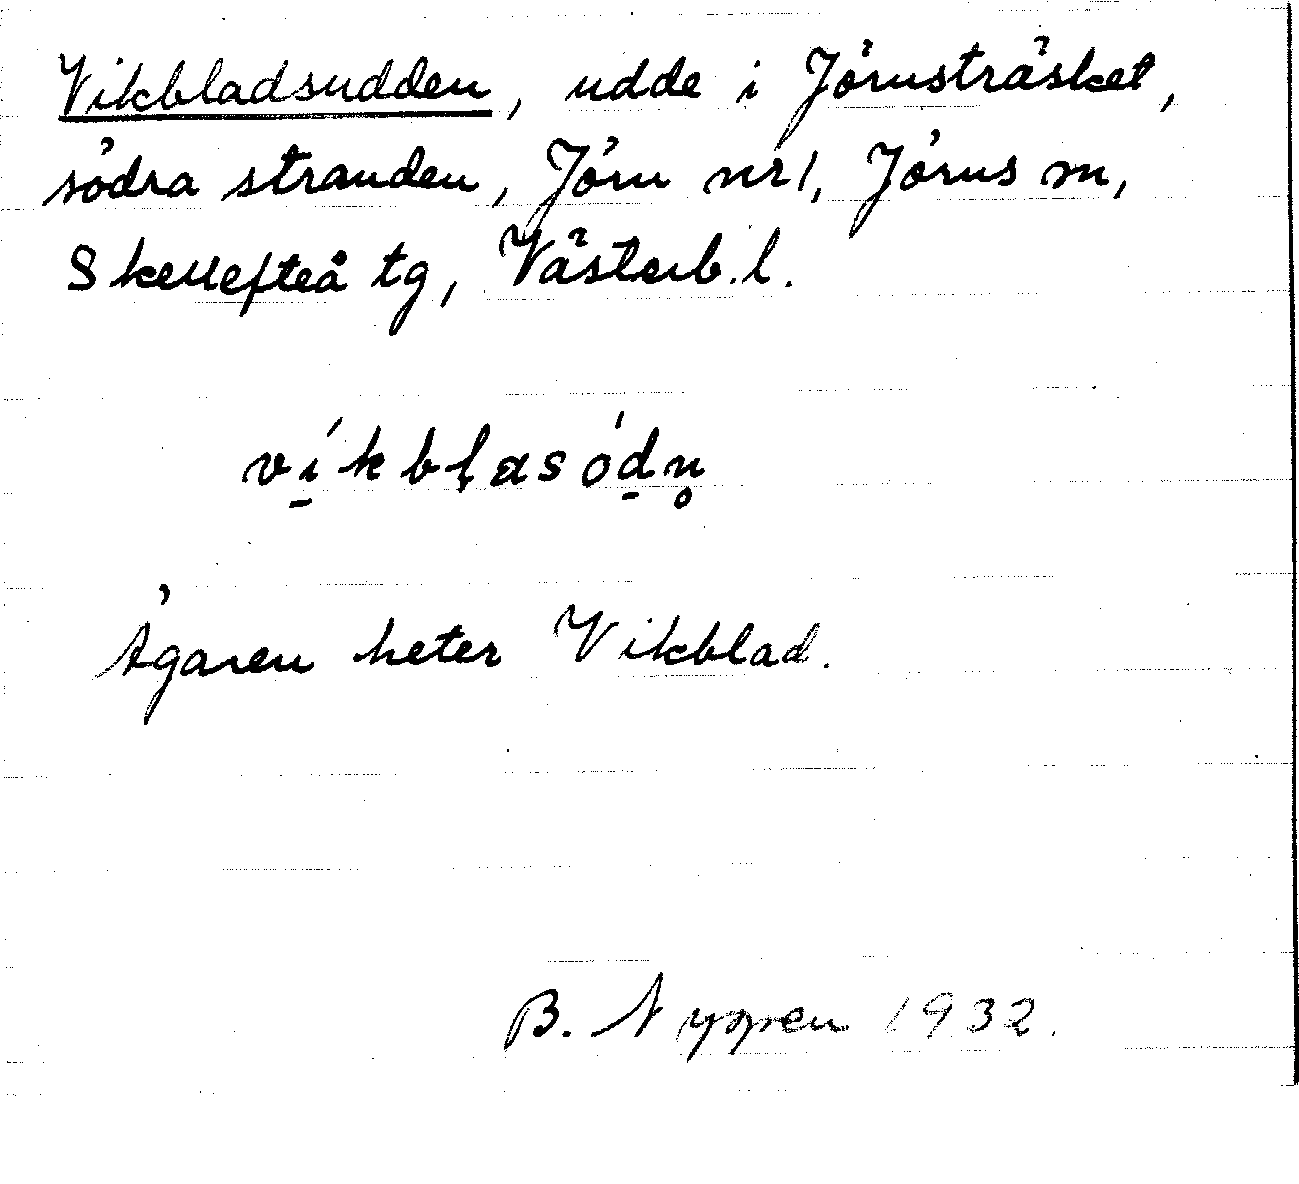 Vikbladsudden, udde i Jörnsträsket,
södra stranden, Jörn nr 1, Jörns sn,
Skellefteå tg, Västerb. l.
ví̱kbḷasód̲n̥
Ägaren heter Vikblad.
B. Nygren 1932.